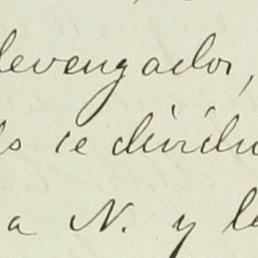 devengador,
se dividi
a N. y l